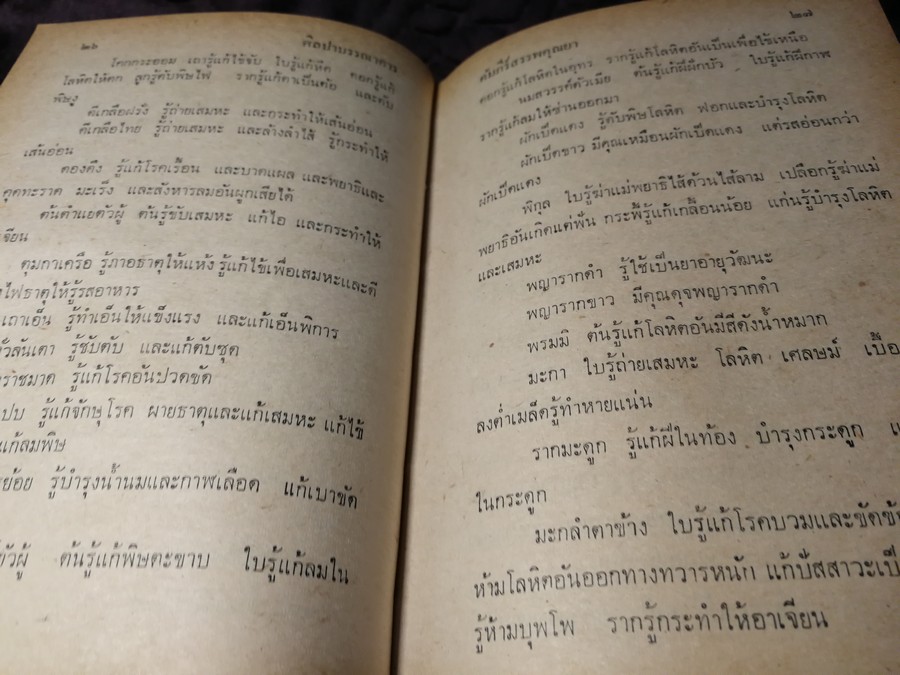 ๒๖ ศิลปาบรรณาคาร
โคกกระออม เถารู้แก้ไข้จับ ใบรู้แก้หืด ดอกรู้แก้
โลหิตให้ตก ลูกรู้ดับพิษไฟ รากรู้แก้ตาเป็นต้อ และดับ
พิษงู
ดีเกลือฝรั่ง รู้ถ่ายเสมหะ และกระทำให้เส้นอ่อน
ดีเกลือไทย รู้ถ่ายเสมหะ และล้างลำไส้ รู้กระทำให้
เส้นอ่อน
ดองดึง รู้แก้โรคเรื้อน และบาดแผล และพยาธิและ
คุดทะราด มะเร็ง และสังหารลมอันผูกเสียได้
ต้นตำแยตัวผู้ ต้นรู้ขับเสมหะ แก้ไอ และกระทำให้
เจียน
ตุมกาเครือ รู้ภาอธาตุให้แห้ง รู้แก้ไข้เพื่อเสมหะและดี
ไฟธาตุให้รู้รสอาหาร
เถาเอ็น รู้ทำเอ็นให้แข็งแรง และแก้เอ็นพิการ
วัลันเตา รู้ชับตับ และแก้ตับซุด
ราชมาด รู้แก้โรคอันปวดขัด
ปบ รู้แก้จักษุโรค ผายธาตุและแก้เสมหะ แก้ไข้
แก้ลมพิษ
ย้อย รู้บำรุงน้ำนมและกาฬเลือด แก้เบาขัด
ตัวผู้ ต้นรู้แก้พิษตะขาบ ใบรู้แก้ลมใน
๒๗
คัมภีร์สรรพคุณยา
ดอกรู้แก้โลหิตในอุทร รากรู้แก้โลหิตอันเป็นเพื่อไข้เหนือ
นมสวรรค์ตัวเมีย ต้นรู้แก้ฝีฝักบัว ใบรู้แก้ฝีกาฬ
รากรู้แก้ลมให้ซ่านออกมา
ผักเป็ดแดง รู้ดับพิษโลหิต ฟอกและบำรุงโลหิต
ผักเป็ดขาว มีคุณเหมือนผักเป็ดแดง แต่รสอ่อนกว่า
ผักเป็ดแดง
พิกุล ใบรู้ฆ่าแม่พยาธิไส้ด้วนไส้ลาม เปลือกรู้ฆ่าแม่
พยาธิอันเกิดแต่ฟัน กระพี้รู้แก้เกลื้อนน้อย แก่นรู้บำรุงโลหิต
และเสมหะ
พญารากดำ รู้ใช้เป็นยาอายุวัฒนะ
พญารากขาว มีคุณดุจพญารากดำ
พรมมิ ต้นรู้แก้โลหิตอันมีสีดังน้ำหมาก
มะกา ใบรู้ถ่ายเสมหะ โลหิต เศลษม์ เบื้อ
ลงต่ำเมล็ดรู้ทำหายแน่น
รากมะดูก รู้แก้ฝีในท้อง บำรุงกระดูก
ในกระดูก
มะกล่ำตาช้าง ใบรู้แก้โรคบวมและขัดข้
ห้ามโลหิตอันออกทางทวารหนัก แก้ปัสสาวะเป็
รู้ห้ามบุพโพ รากรู้กระทำให้อาเจียน